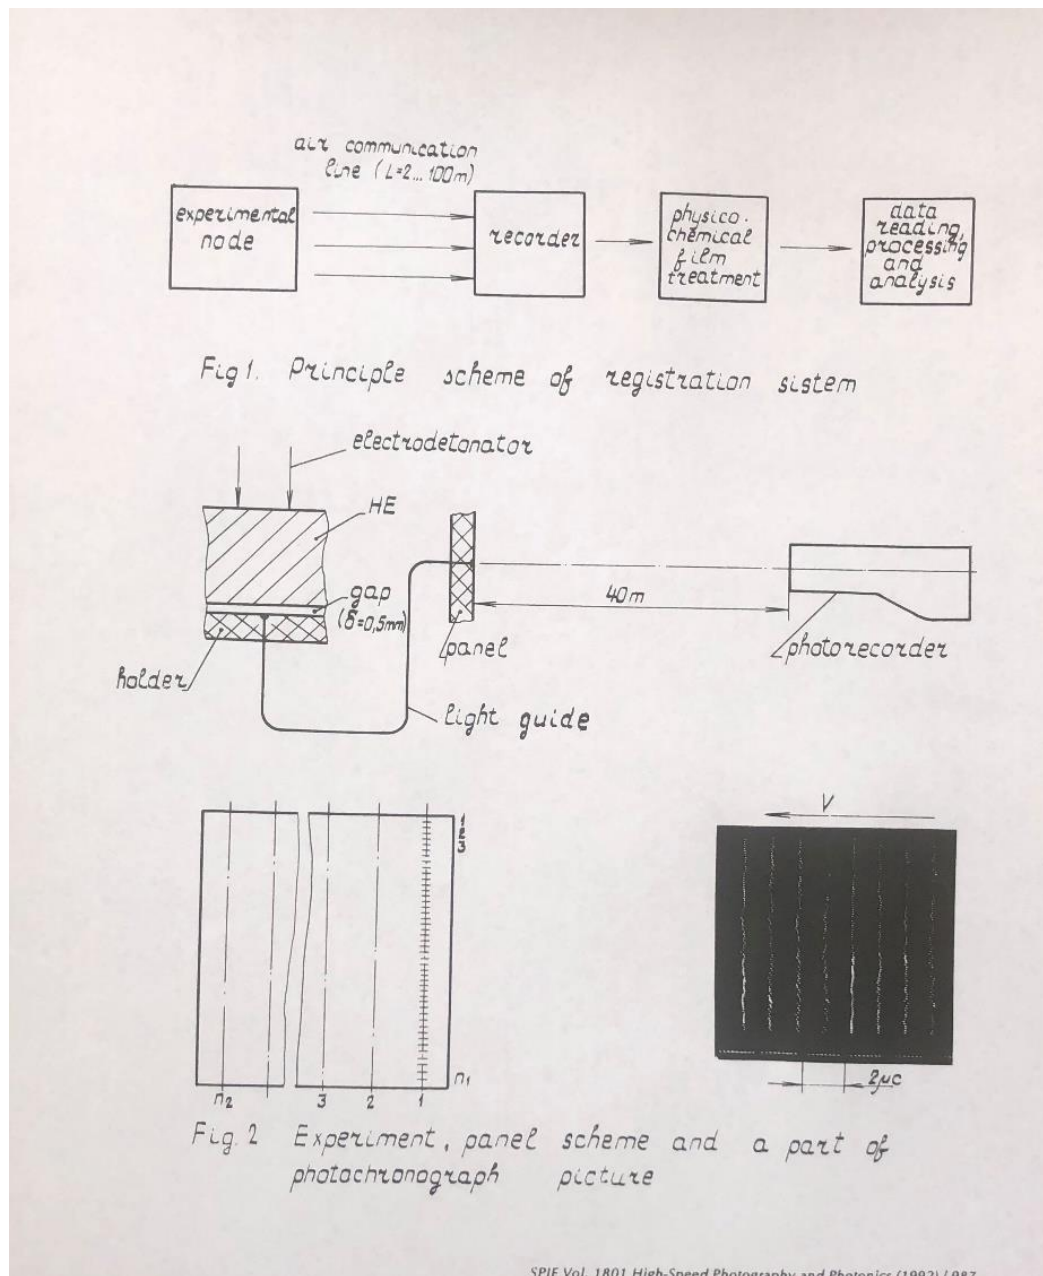 air communication
line (L=2...100m)
experimental
node
recorder
physico-
chemical
film
treatment
data
reading,
processing
and
analysis
Fig 1. Principle scheme of registration sistem
electrodetonator
HE
gap
(δ=0,5mm)
holder
panel
light guide
40m
photorecorder
1
2
3
n₁
n₂ 3 2 1
V
2μc
Fig. 2 Experiment, panel scheme and a part of
photochronograph picture
SPIE Vol. 1801 High-Speed Photography and Photonics (1992) / 987